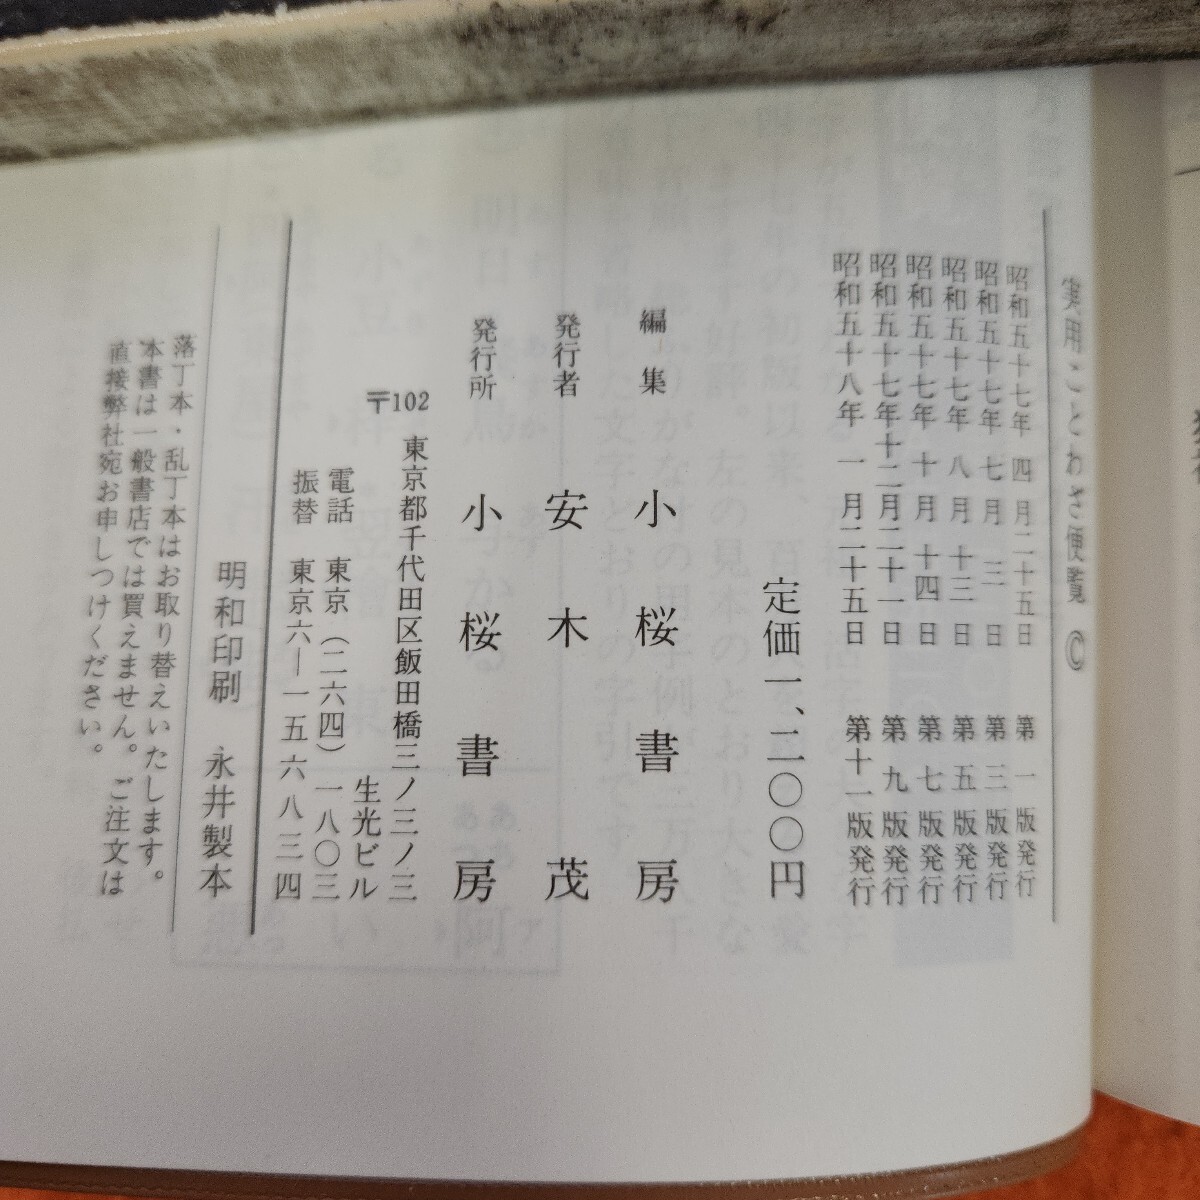 実用ことわざ便覧 ©
昭和五十七年 四 月二十五日 第 一 版発行
昭和五十七年 七 月 三 日 第 三 版発行
昭和五十七年 八 月 十三 日 第 五 版発行
昭和五十七年 十 月 十四 日 第 七 版発行
昭和五十七年十二月二十一日 第 九 版発行
昭和五十八年 一 月二十五日 第十一 版発行
定価一、二〇〇円
編集 小桜書房
発行者 安木茂
発行所 小桜書房
〒102 東京都千代田区飯田橋三ノ三ノ三
生光ビル
電話 東京(二六四)一八〇三
振替 東京六―一五六八三四
明和印刷 永井製本
落丁本・乱丁本はお取り替えいたします。
本書は一般書店では買えません。ご注文は
直接弊社宛お申しつけください。